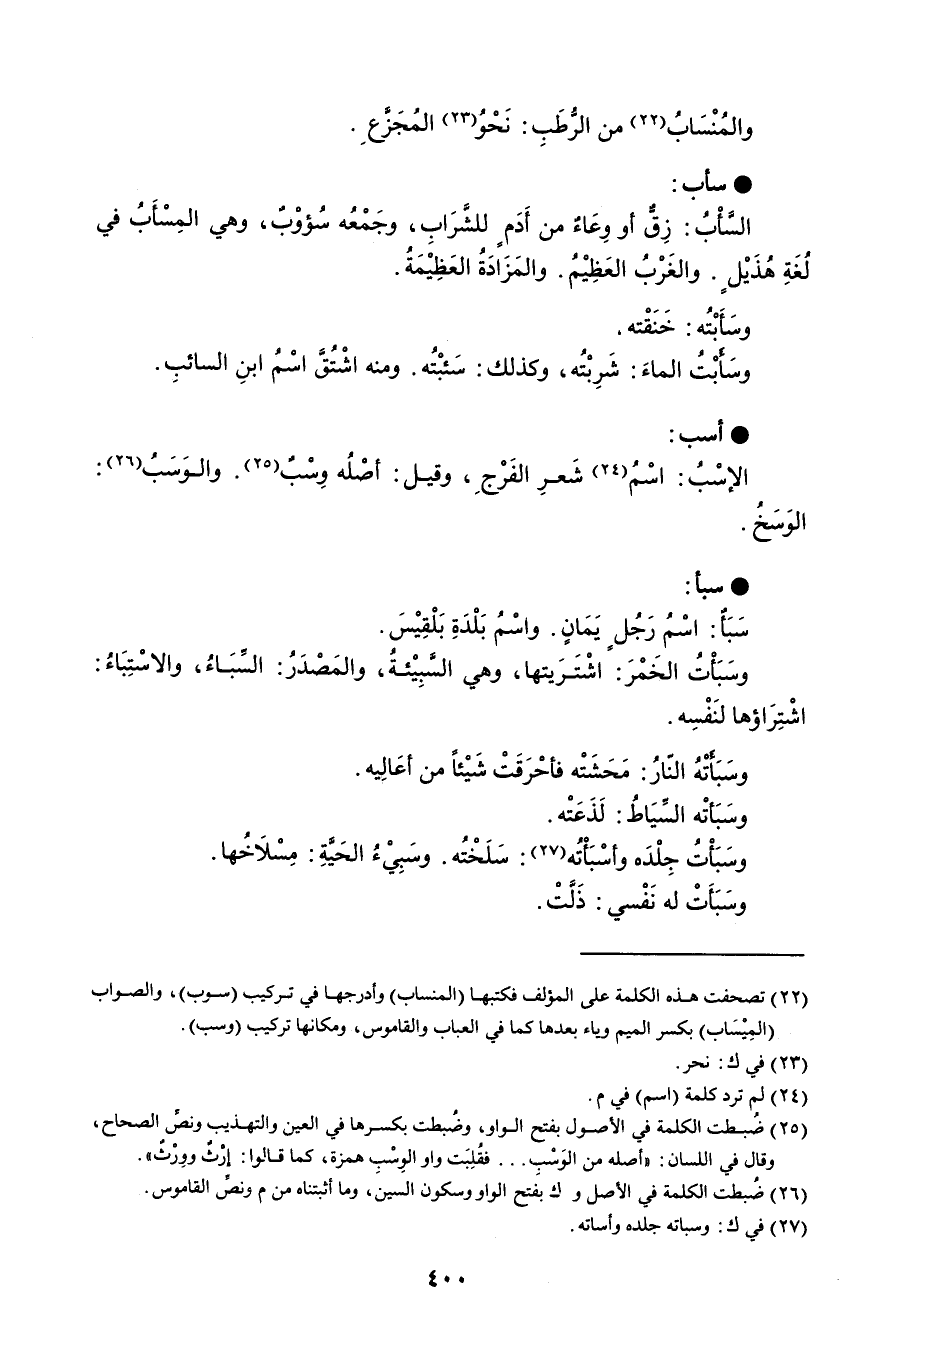 والمُنْسَابُ(٢٢) من الرُّطَبِ: نَحْوُ(٢٣) المُجَزَّعِ.
● سأب:
السَّأْبُ: زِقٌّ أو وِعَاءٌ من أَدَمٍ للشَّرَابِ، وجَمْعُه سُؤوْبٌ، وهي المِسْأَبُ في
لُغَةِ هُذَيْلٍ. والغَرْبُ العَظِيْمُ. والمَزَادَةُ العَظِيْمَةُ.
وسَأَبْتُه: خَنَقْته.
وسَأَبْتُ الماءَ: شَرِبْتُه، وكذلك: سَئبْتُه. ومنه اشْتُقَّ اسْمُ ابنِ السائبِ.
● أسب:
الإسْبُ: اسْمُ(٢٤) شَعرِ الفَرْجِ، وقيل: أصْلُه وِسْبٌ(٢٥). والوَسَبُ(٢٦):
الوَسَخُ.
● سبأ:
سَبَأٌ: اسْمُ رَجُلٍ يَمَانٍ. واسْمُ بَلْدَةِ بَلْقِيْسَ.
وسَبَأْتُ الخَمْرَ: اشْتَرَيتها، وهي السَّبِيْئةُ، والمَصْدَرُ: السِّبَاءُ، والاسْتِبَاءُ:
اشْتِرَاؤها لنَفْسِه.
وسَبَأَتْهُ النّارُ: مَحَشَتْه فأحْرَقَتْ شَيْئاً من أعَالِيه.
وسَبَأتْه السِّيَاطُ: لَذَعَتْه.
وسَبَأْتُ جِلْدَه وأسْبَأْتُه(٢٧): سَلَخْتُه. وسَبِيْءُ الحَيَّةِ: مِسْلَاخُها.
وسَبَأَتْ له نَفْسي: ذَلَّتْ.
(٢٢) تصحفت هذه الكلمة على المؤلف فكتبها (المنساب) وأدرجها في تركيب (سوب)، والصواب
(المِيْسَاب) بكسر الميم وياء بعدها كما في العباب والقاموس، ومكانها تركيب (وسب).
(٢٣) في ك: نحر.
(٢٤) لم ترد كلمة (اسم) في م.
(٢٥) ضُبطت الكلمة في الأصول بفتح الواو، وضُبطت بكسرها في العين والتهذيب ونصِّ الصحاح،
وقال في اللسان: «أصله من الوَسْبِ... فقُلِبَت واو الوِسْبِ همزة، كما قالوا: إرْثٌ ووِرْثٌ».
(٢٦) ضُبطت الكلمة في الأصل و ك بفتح الواو وسكون السين، وما أثبتناه من م ونصِّ القاموس.
(٢٧) في ك: وسباته جلده وأساته.
٤٠٠